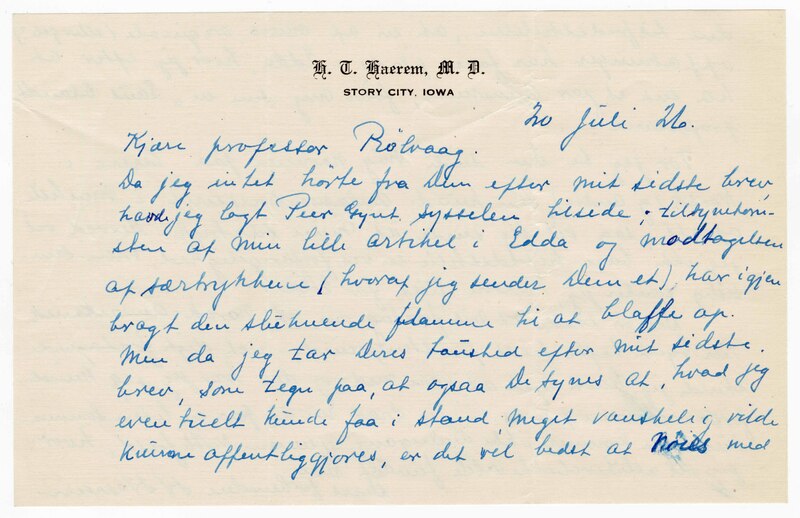 H. T. Haerem, M. D.
STORY CITY, IOWA
20 Juli 26.
Kjære professor Rölvaag.
Da jeg intet hörte fra Dem efter mit sidste brev,
havde jeg lagt Peer Gynt sysselen tilside; tilsynekom-
sten af min lille artikel i Edda og modtagelsen
af særtrykkene (hvoraf jeg sender Dem et), har igjen
bragt den sluknende flamme til at blaffe op.
Men da jeg tar Deres taushed efter mit sidste
brev, som tegn paa, at ogsaa De synes at, hvad jeg
eventuelt kunde faa i stand, meget vanskelig vilde
kunne offentliggjores, er det vel bedst at nöies med